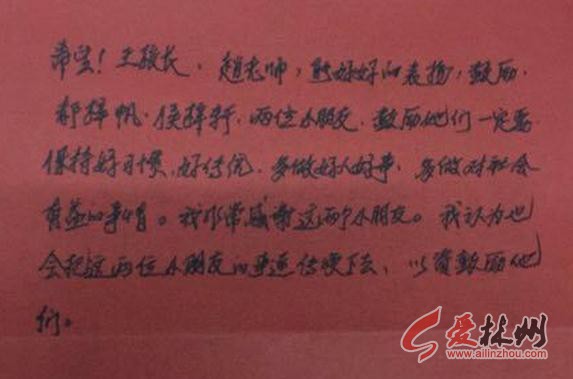 希望！王校长，赵老师，能好好的表扬，鼓励，
郝择帆·侯择轩，两位小朋友，鼓励他们一定要
保持好习惯，好传统，多做好人好事，多做对社会
有益的事情。我非常感谢这两个小朋友。我认为也
会把这两位小朋友的事迹传颂下去，以资鼓励他
们。
爱林州
www.ailinzhou.com